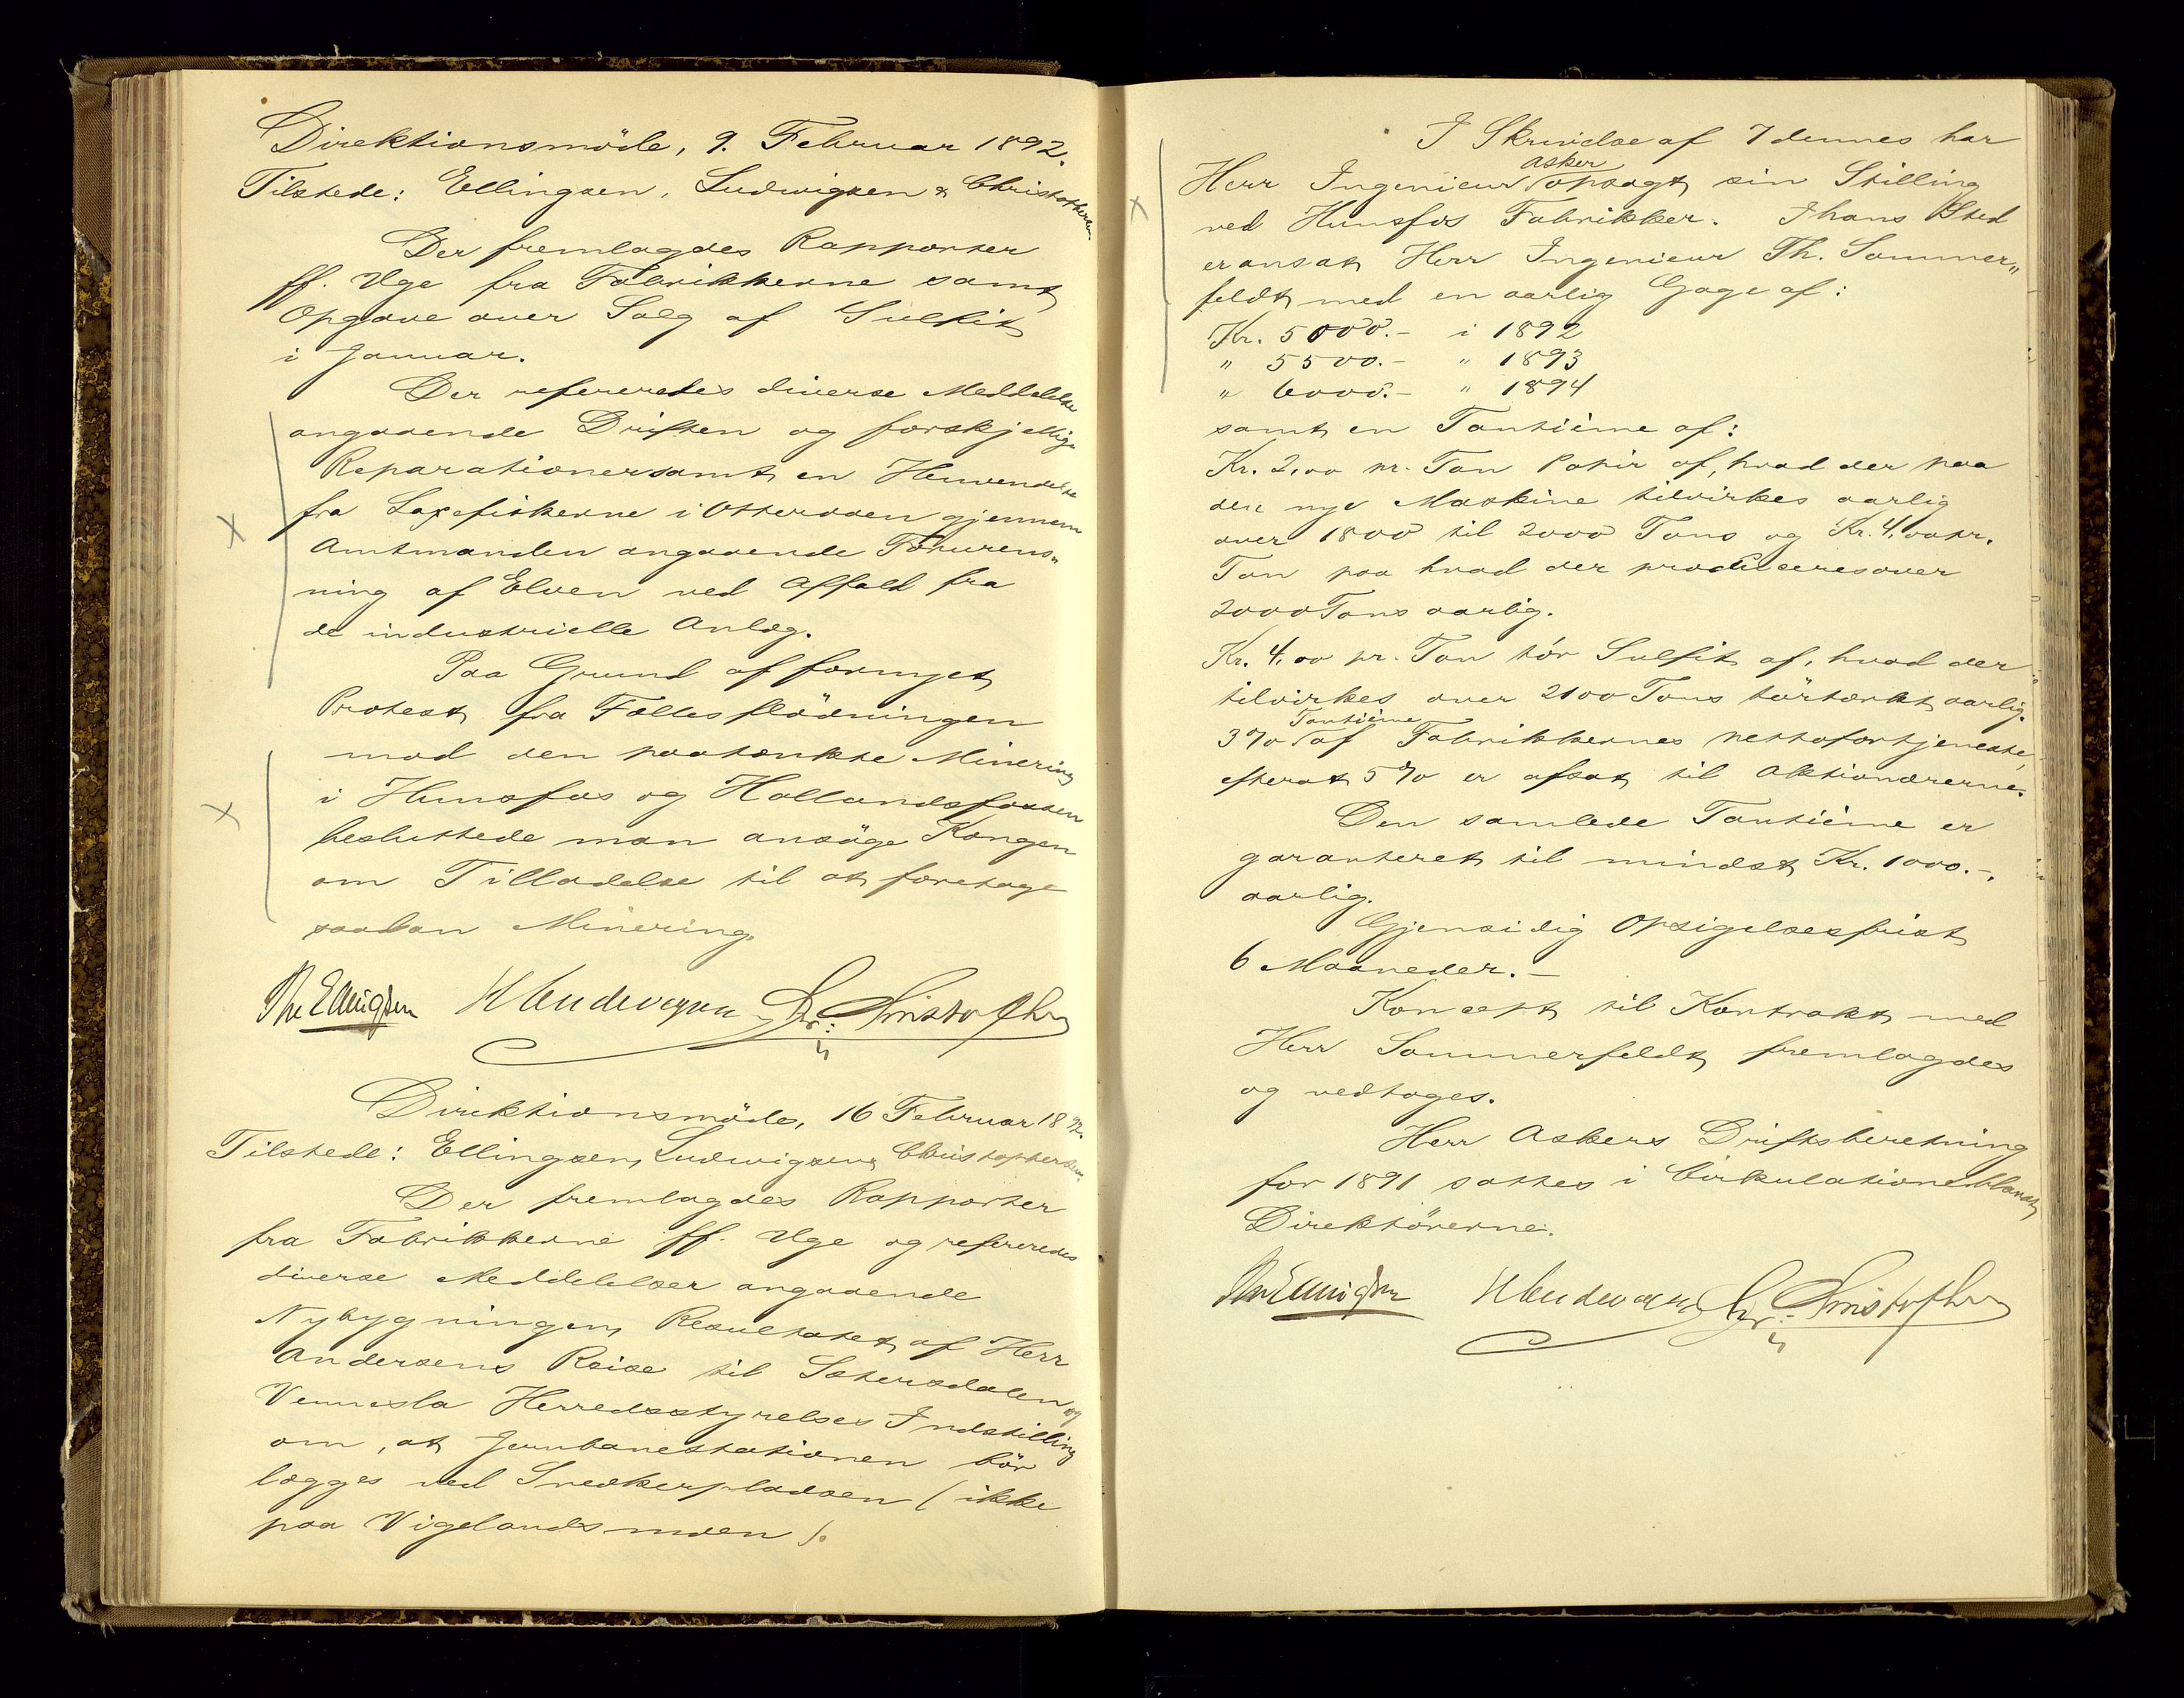 Direktionsmöde, 9. Februar 1892.
Tilstede: Ellingsen, Ludwigsen & Christophersen.
Der fremlagdes Rapporter
ff. Uge fra Fabrikkerne samt
Opgave over Salg af Sulfit
i Januar.
Der refereredes diverse Meddelelser
angaaende Driften og forskjellige
Reparationer samt en Henvendelse
fra Laxefiskerne i Otteraaen gjennem
Amtmanden angaaende Forurens„
ning af Elven ved Affald fra
de industrielle Anlæg.
Paa Grund af fornyet
Protest fra Fællesflödningen
mod den paatænkte Minering
i Hunsfos og Hallandsfossen
besluttede man ansöge Kongen
om Tilladelse til at foretage
saadan Minering.
Th. Ellingsen H Ludwigsen Chr. Christophersen
Direktionsmöde, 16 Februar 1892.
Tilstede: Ellingsen, Ludwigsen & Christophersen.
Der fremlagdes Rapporter
fra Fabrikkerne ff. Uge og refereredes
diverse Meddelelser angaaende
Nybygningen, Resultatet af Herr
Andersens Reise til Sætersdalen og
Vennesla Herredsstyrelses Indstilling
om, at Jernbanestationen bör
lægges ved Snedkerpladsen (ikke
paa Vigelandsmoen).
I Skrivelse af 7 dennes har
Herr Ingenieur Asker opsagt sin Stilling
ved Hunsfos Fabrikker. I hans Sted
er ansat Herr Ingenieur Th. Sommer„
feldt med en aarlig Gage af:
Kr. 5000.- i 1892
" 5500.- " 1893
" 6000.- " 1894
samt en Tantième af:
Kr. 2,00 pr. Ton Papir af, hvad der paa
den nye Maskine tilvirkes aarlig
over 1800 til 2000 Tons og Kr. 4,00 pr.
Ton paa hvad der produceres over
2000 Tons aarlig.
Kr. 4,00 pr. Ton tör Sulfit af, hvad der
tilvirkes over 2100 Tons törtænkt aarlig.
3% Tantième af Fabrikkernes nettofortjeneste,
efterat 5% er afsat til Aktionærerne.
Den samlede Tantième er
garanteret til mindst Kr. 1000.-,
aarlig.
Gjensidig Opsigelsesfrist
6 Maaneder.-
Koncept til Kontrakt med
Herr Sommerfeldt fremlagdes
og vedtoges.
Herr Askers Driftsberetning
for 1891 sattes i Cirkulation blandt
Direktörerne.
Th. Ellingsen H Ludwigsen Chr. Christophersen